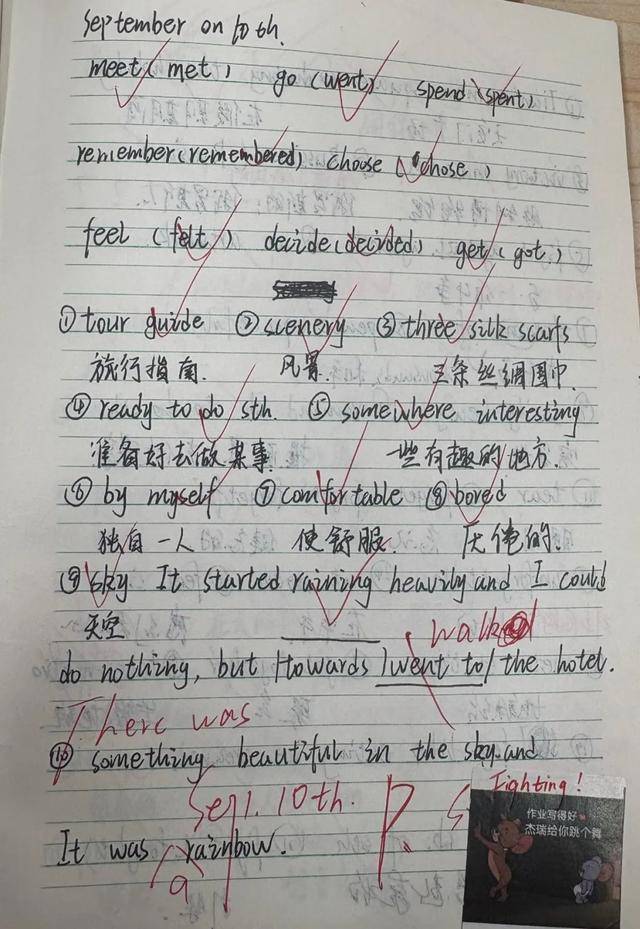 September on 10th.
meet (met) go (went) spend (spent)
remember (remembered) choose (chose)
feel (felt) decide (decided) get (got)
① tour guide ② scenery ③ three silk scarfs
旅行指南. 风景. 三条丝绸围巾.
④ ready to do sth. ⑤ somewhere interesting
准备好去做某事. 一些有趣的地方.
⑥ by myself ⑦ comfortable ⑧ bored
独自一人 使舒服. 厌倦的.
⑨ sky It started raining heavily and I could
天空
walked
do nothing, but (towards) went to / the hotel.
There was
⑩ something beautiful in the sky. and
Sep. 10th.
Fighting!
It was rainbow.
a
作业写得好
杰瑞给你跳个舞